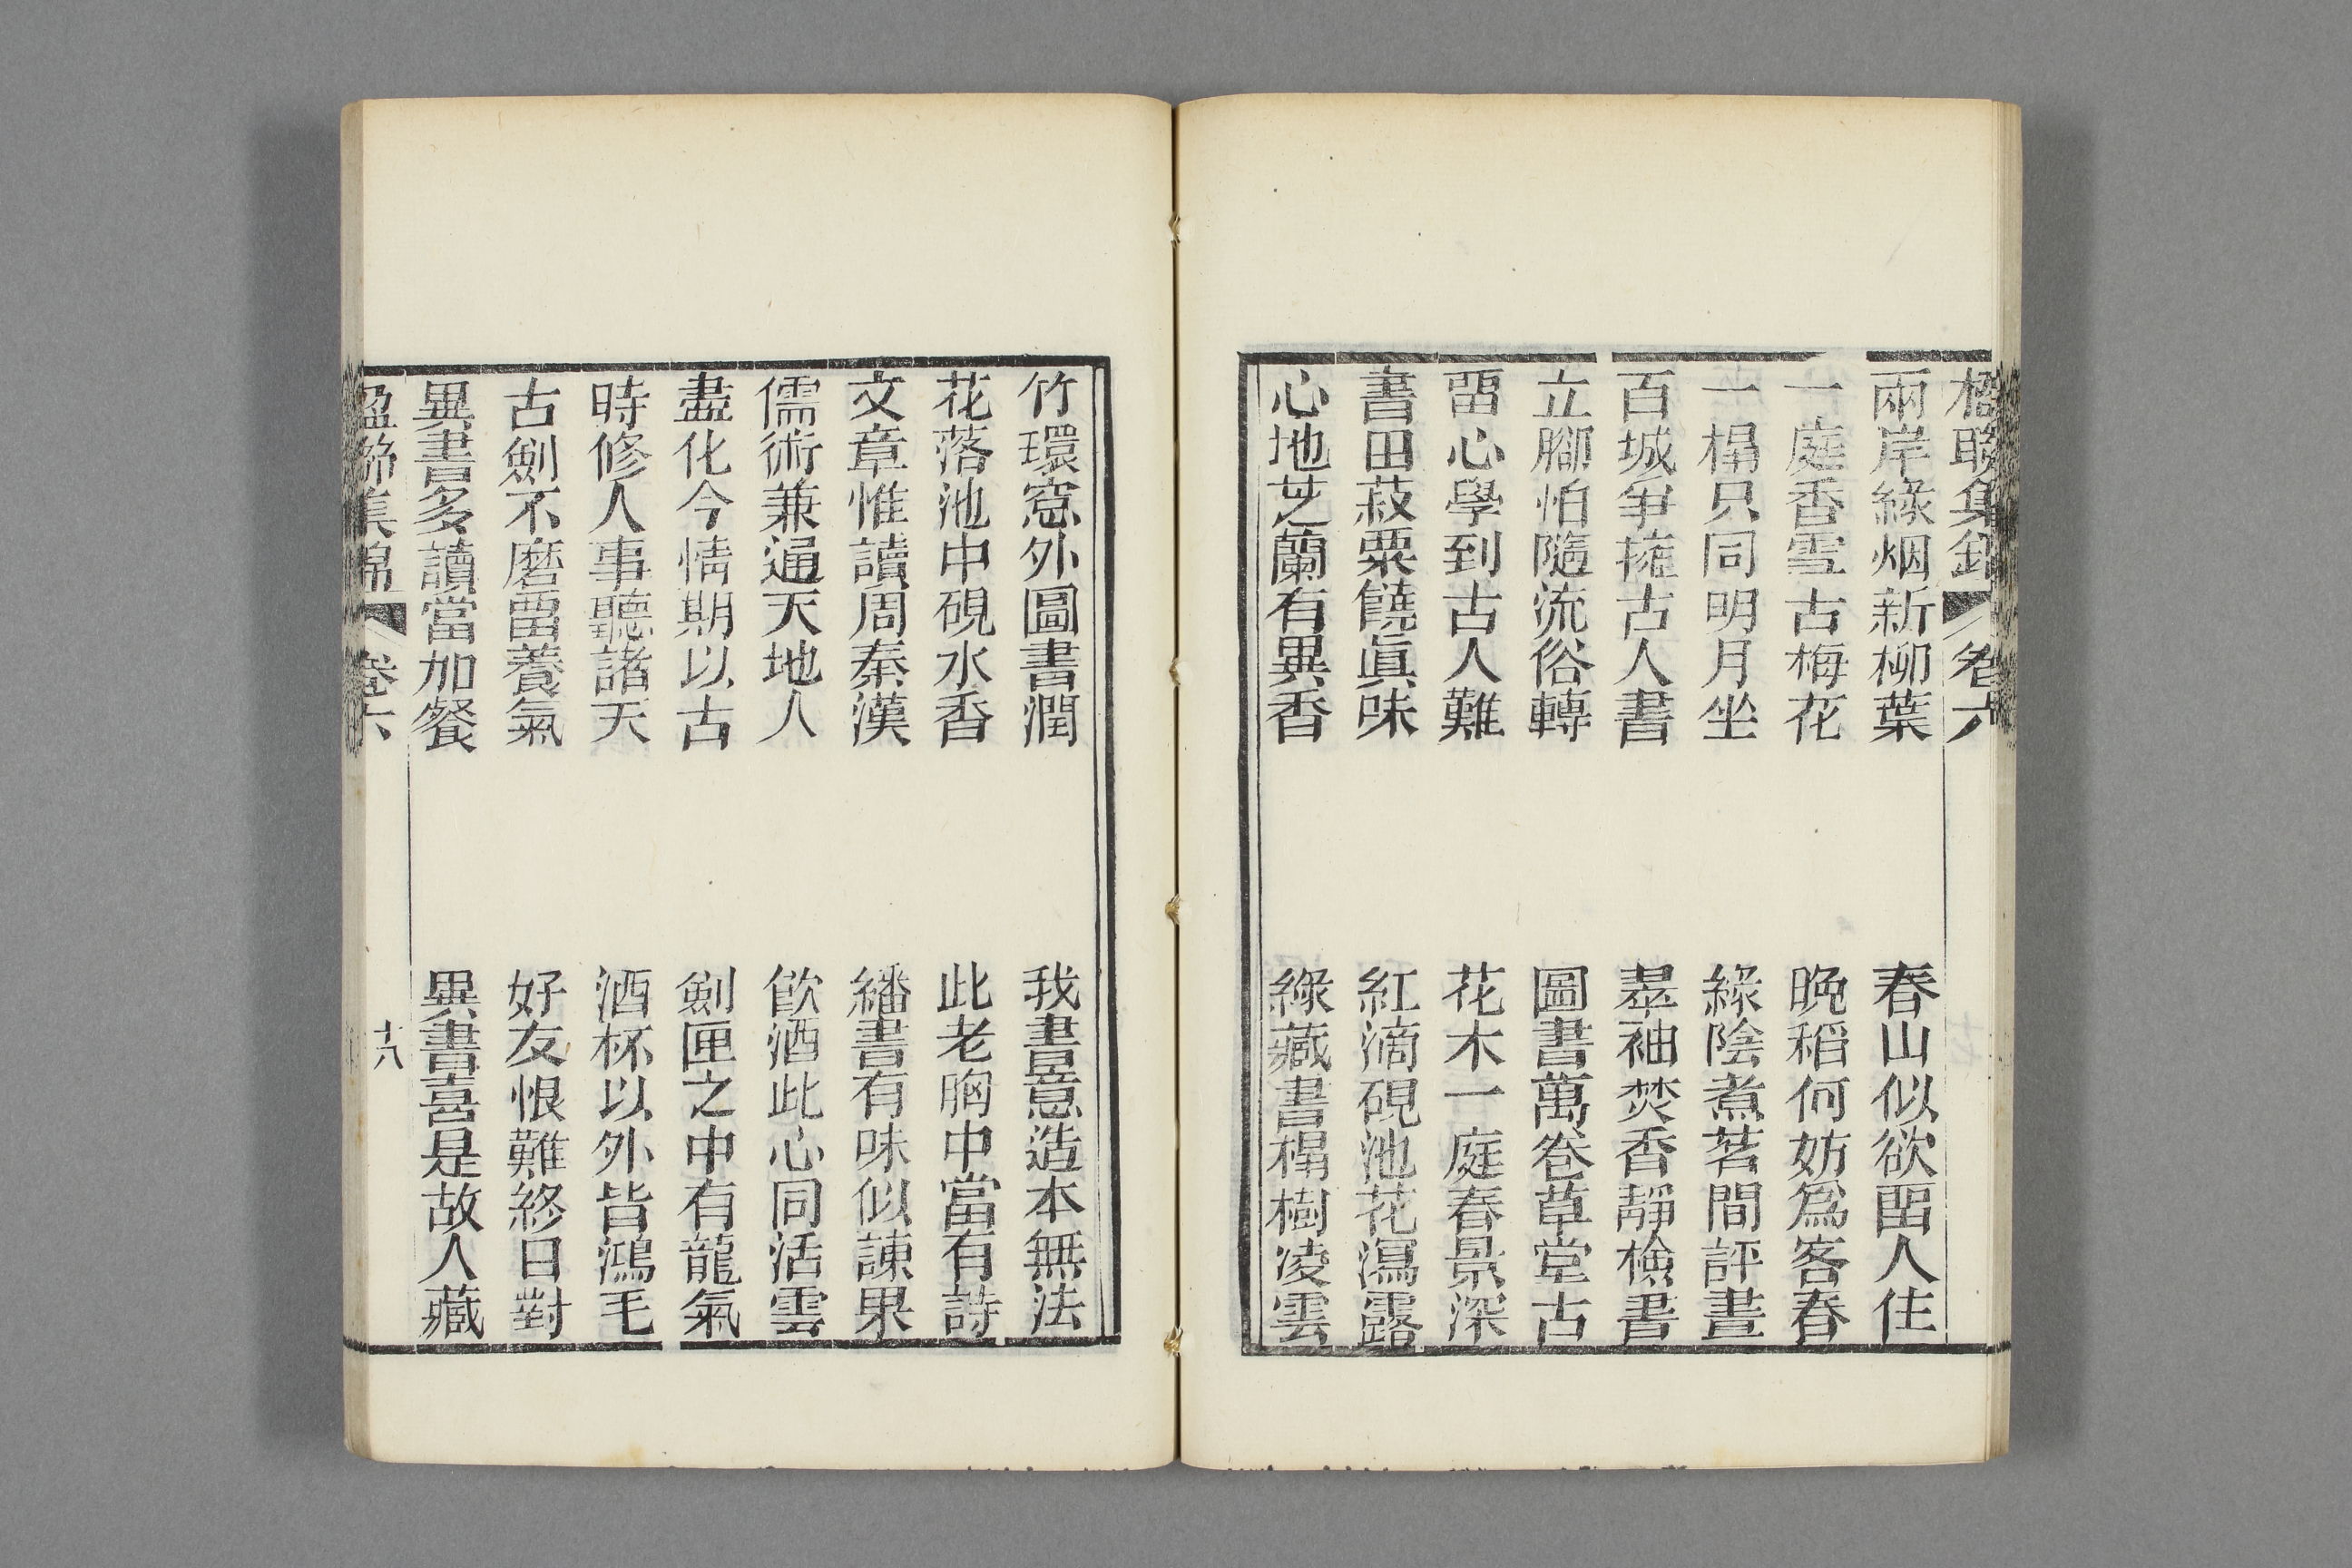 楹聯集錦　卷六
兩岸綠烟新柳葉　春山似欲畱人住
一庭香雪古梅花　晚稻何妨爲客舂
一榻只同明月坐　綠陰煮茗間評畫
百城爭擁古人書　翠袖焚香靜檢書
立腳怕隨流俗轉　圖書萬卷草堂古
畱心學到古人難　花木一庭春景深
書田菽粟饒眞味　紅滴硯池花瀉露
心地芝蘭有異香　綠藏書榻樹凌雲
竹環窓外圖書潤　我書意造本無法
花落池中硯水香　此老胸中當有詩
文章惟讀周秦漢　繙書有味似諫果
儒術兼通天地人　飮酒此心同活雲
盡化今情期以古　劍匣之中有龍氣
時修人事聽諸天　酒杯以外皆鴻毛
古劍不磨畱養氣　好友恨難終日對
異書多讀當加餐　異書喜是故人藏
楹聯集錦　卷六　十八